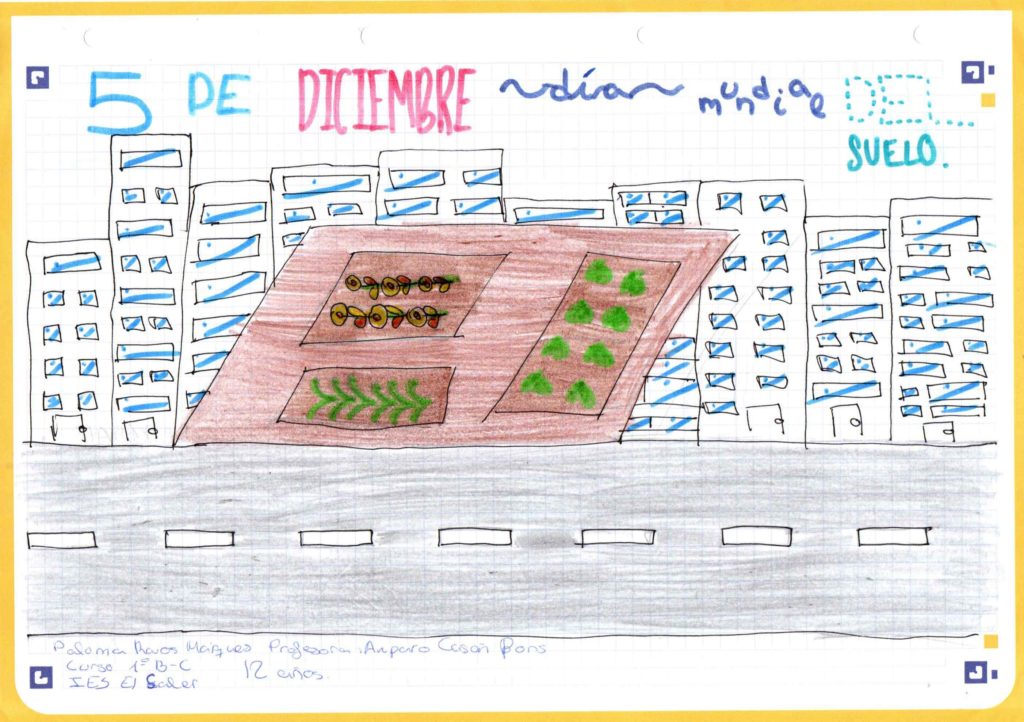 5 DE DICIEMBRE día mundial DEL....
SUELO.
Paloma Ravos Márquez Profesora: Amparo Casañ Pons
Curso 1º B-C 12 años
IES El Saler